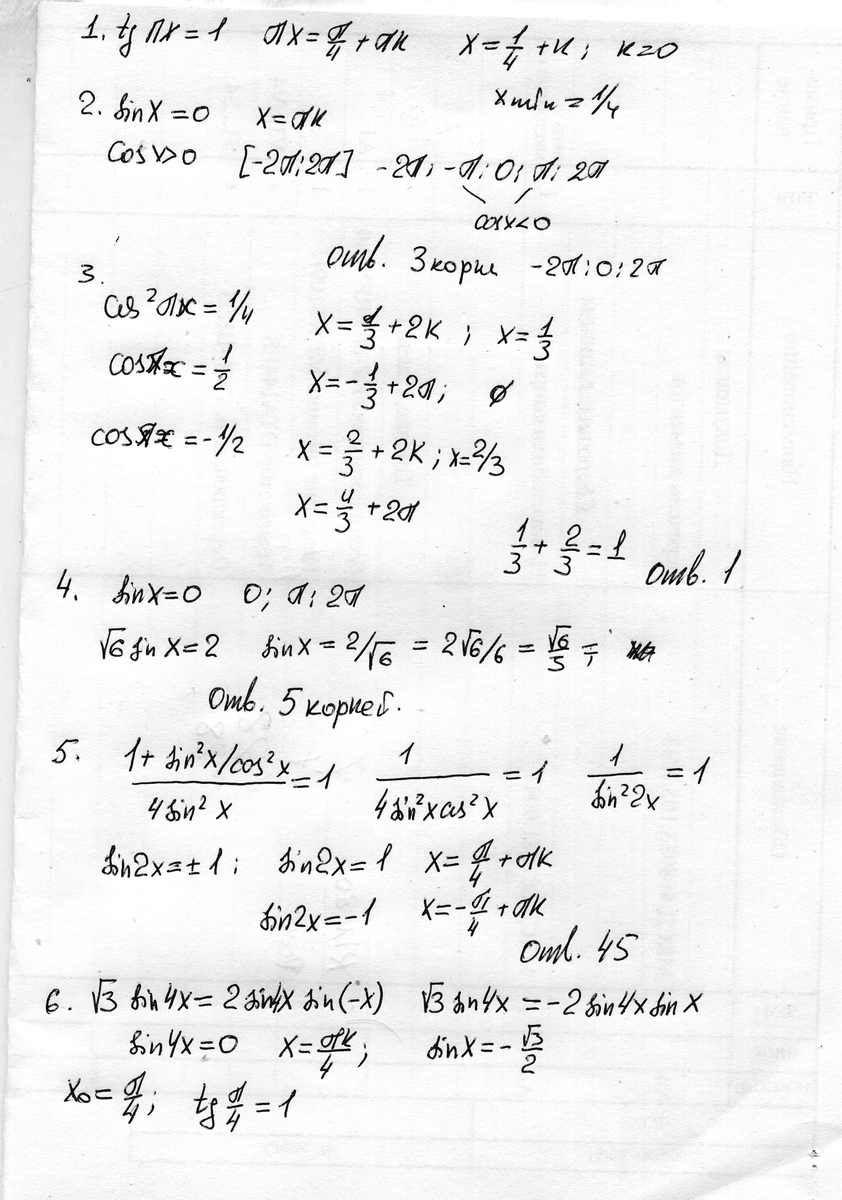 1. tg πx = 1   πx = π/4 + πk   x = 1/4 + k ;  k=0
x min = 1/4
2. sin x = 0   x = πk
cos x>0   [-2π; 2π]   -2π; -π; 0; π; 2π
cos x<0
Отв. 3 корня   -2π; 0; 2π
3.
cos²πx = 1/4   x = 1/3 + 2k ;  x = 1/3
cos πx = 1/2   x = -1/3 + 2π;  ∅
cos πx = -1/2   x = 2/3 + 2k ; x = 2/3
x = 4/3 + 2π
1/3 + 2/3 = 1   Отв. 1
4. sin x = 0   0; π; 2π
√6 sin x = 2   sin x = 2/√6 = 2√6/6 = √6/3 = ;
Отв. 5 корней.
5. (1 + sin²x/cos²x)/(4 sin² x) = 1   1/(4 sin²x cos²x) = 1   1/(sin²2x) = 1
sin2x = ± 1 ;  sin2x = 1   x = π/4 + πk
sin2x = -1   x = -π/4 + πk
Отв. 45
6. √3 sin4x = 2 sin4x sin(-x)   √3 sin4x = -2 sin4x sin x
sin4x = 0   x = πk/4 ;   sin x = -√3/2
x₀ = π/4 ;  tg π/4 = 1